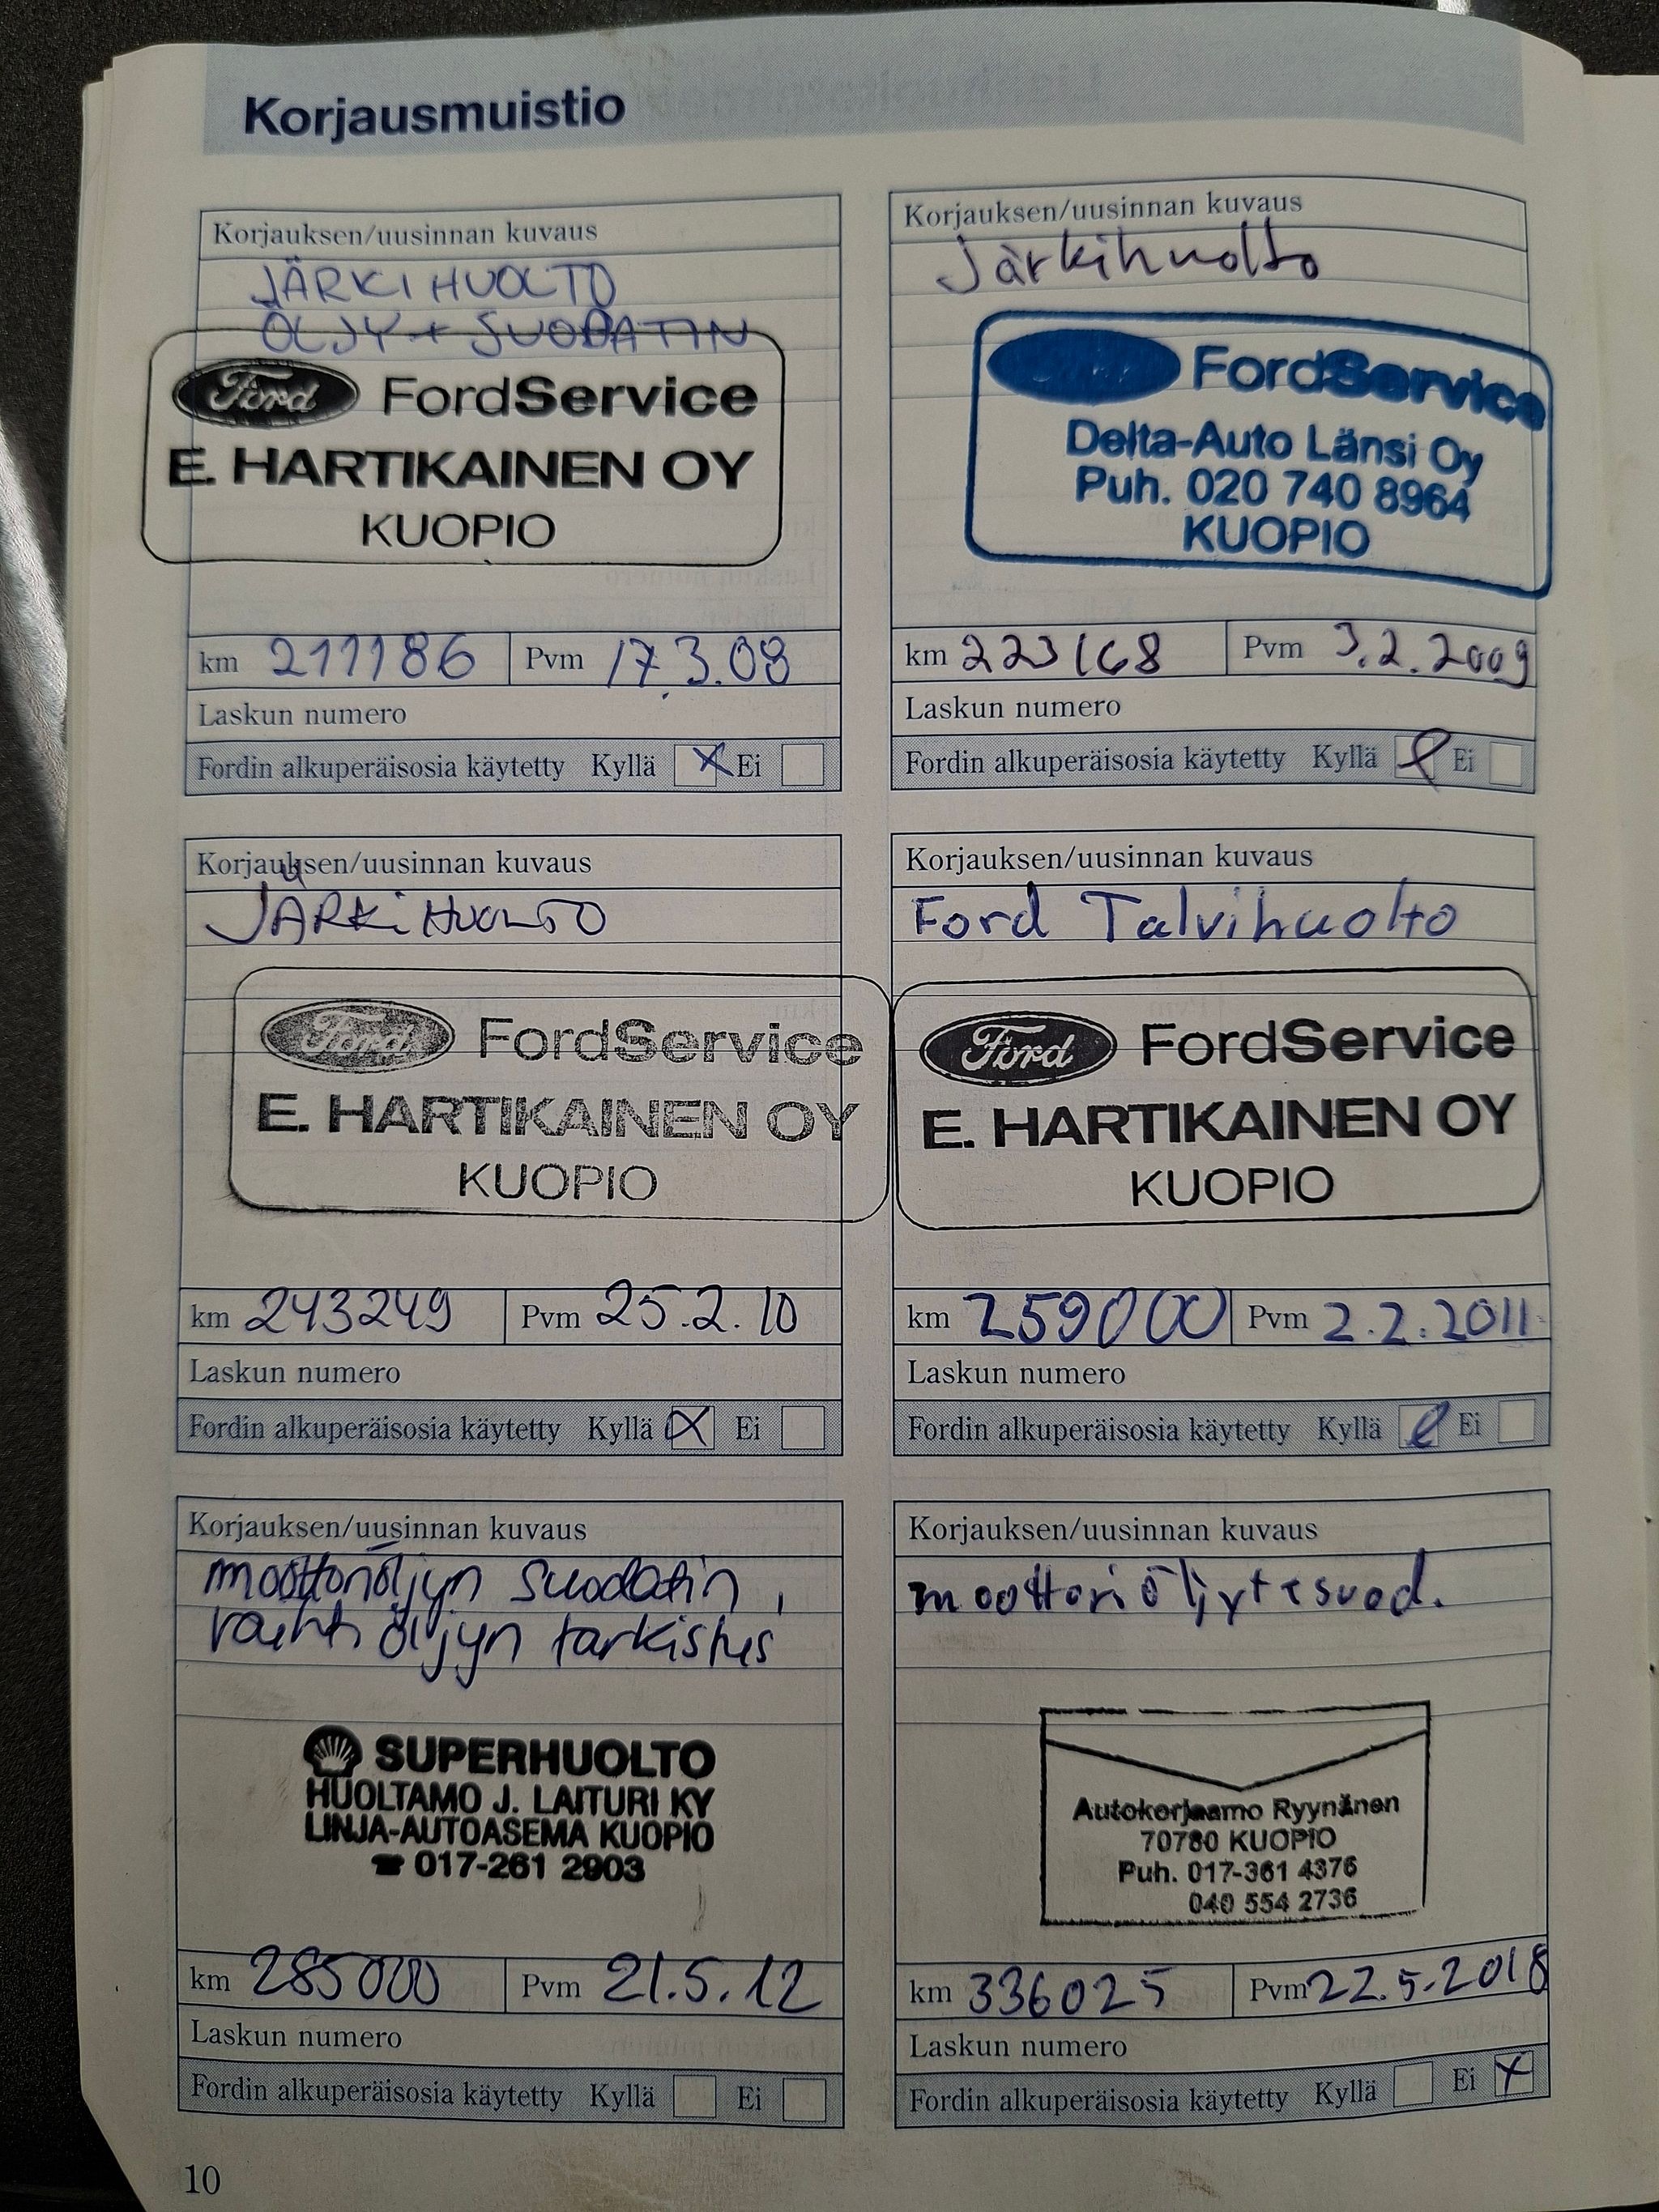 Korjausmuistio
Korjauksen/uusinnan kuvaus
JÄRKIHUOLTO
ÖLJY + SUODATIN
Ford FordService
E. HARTIKAINEN OY
KUOPIO
km 211186 Pvm 17.3.08
Laskun numero
Fordin alkuperäisosia käytetty Kyllä X Ei
Korjauksen/uusinnan kuvaus
Järkihuolto
FordService
Delta-Auto Länsi Oy
Puh. 020 740 8964
KUOPIO
km 223168 Pvm 3.2.2009
Laskun numero
Fordin alkuperäisosia käytetty Kyllä Ei
Korjauksen/uusinnan kuvaus
JÄRKIHUOLTO
Ford FordService
E. HARTIKAINEN OY
KUOPIO
km 243249 Pvm 25.2.10
Laskun numero
Fordin alkuperäisosia käytetty Kyllä X Ei
Korjauksen/uusinnan kuvaus
Ford Talvihuolto
Ford FordService
E. HARTIKAINEN OY
KUOPIO
km 259000 Pvm 2.2.2011
Laskun numero
Fordin alkuperäisosia käytetty Kyllä Ei
Korjauksen/uusinnan kuvaus
moottoriöljyn suodatin,
vaihtöljyn tarkistus
SUPERHUOLTO
HUOLTAMO J. LAITURI KY
LINJA-AUTOASEMA KUOPIO
☎ 017-261 2903
km 285000 Pvm 21.5.12
Laskun numero
Fordin alkuperäisosia käytetty Kyllä Ei
Korjauksen/uusinnan kuvaus
moottoriöljyt+suod.
Autokorjaamo Ryynänen
70780 KUOPIO
Puh. 017-361 4376
040 554 2736
km 336025 Pvm 22.5.2018
Laskun numero
Fordin alkuperäisosia käytetty Kyllä Ei X
10